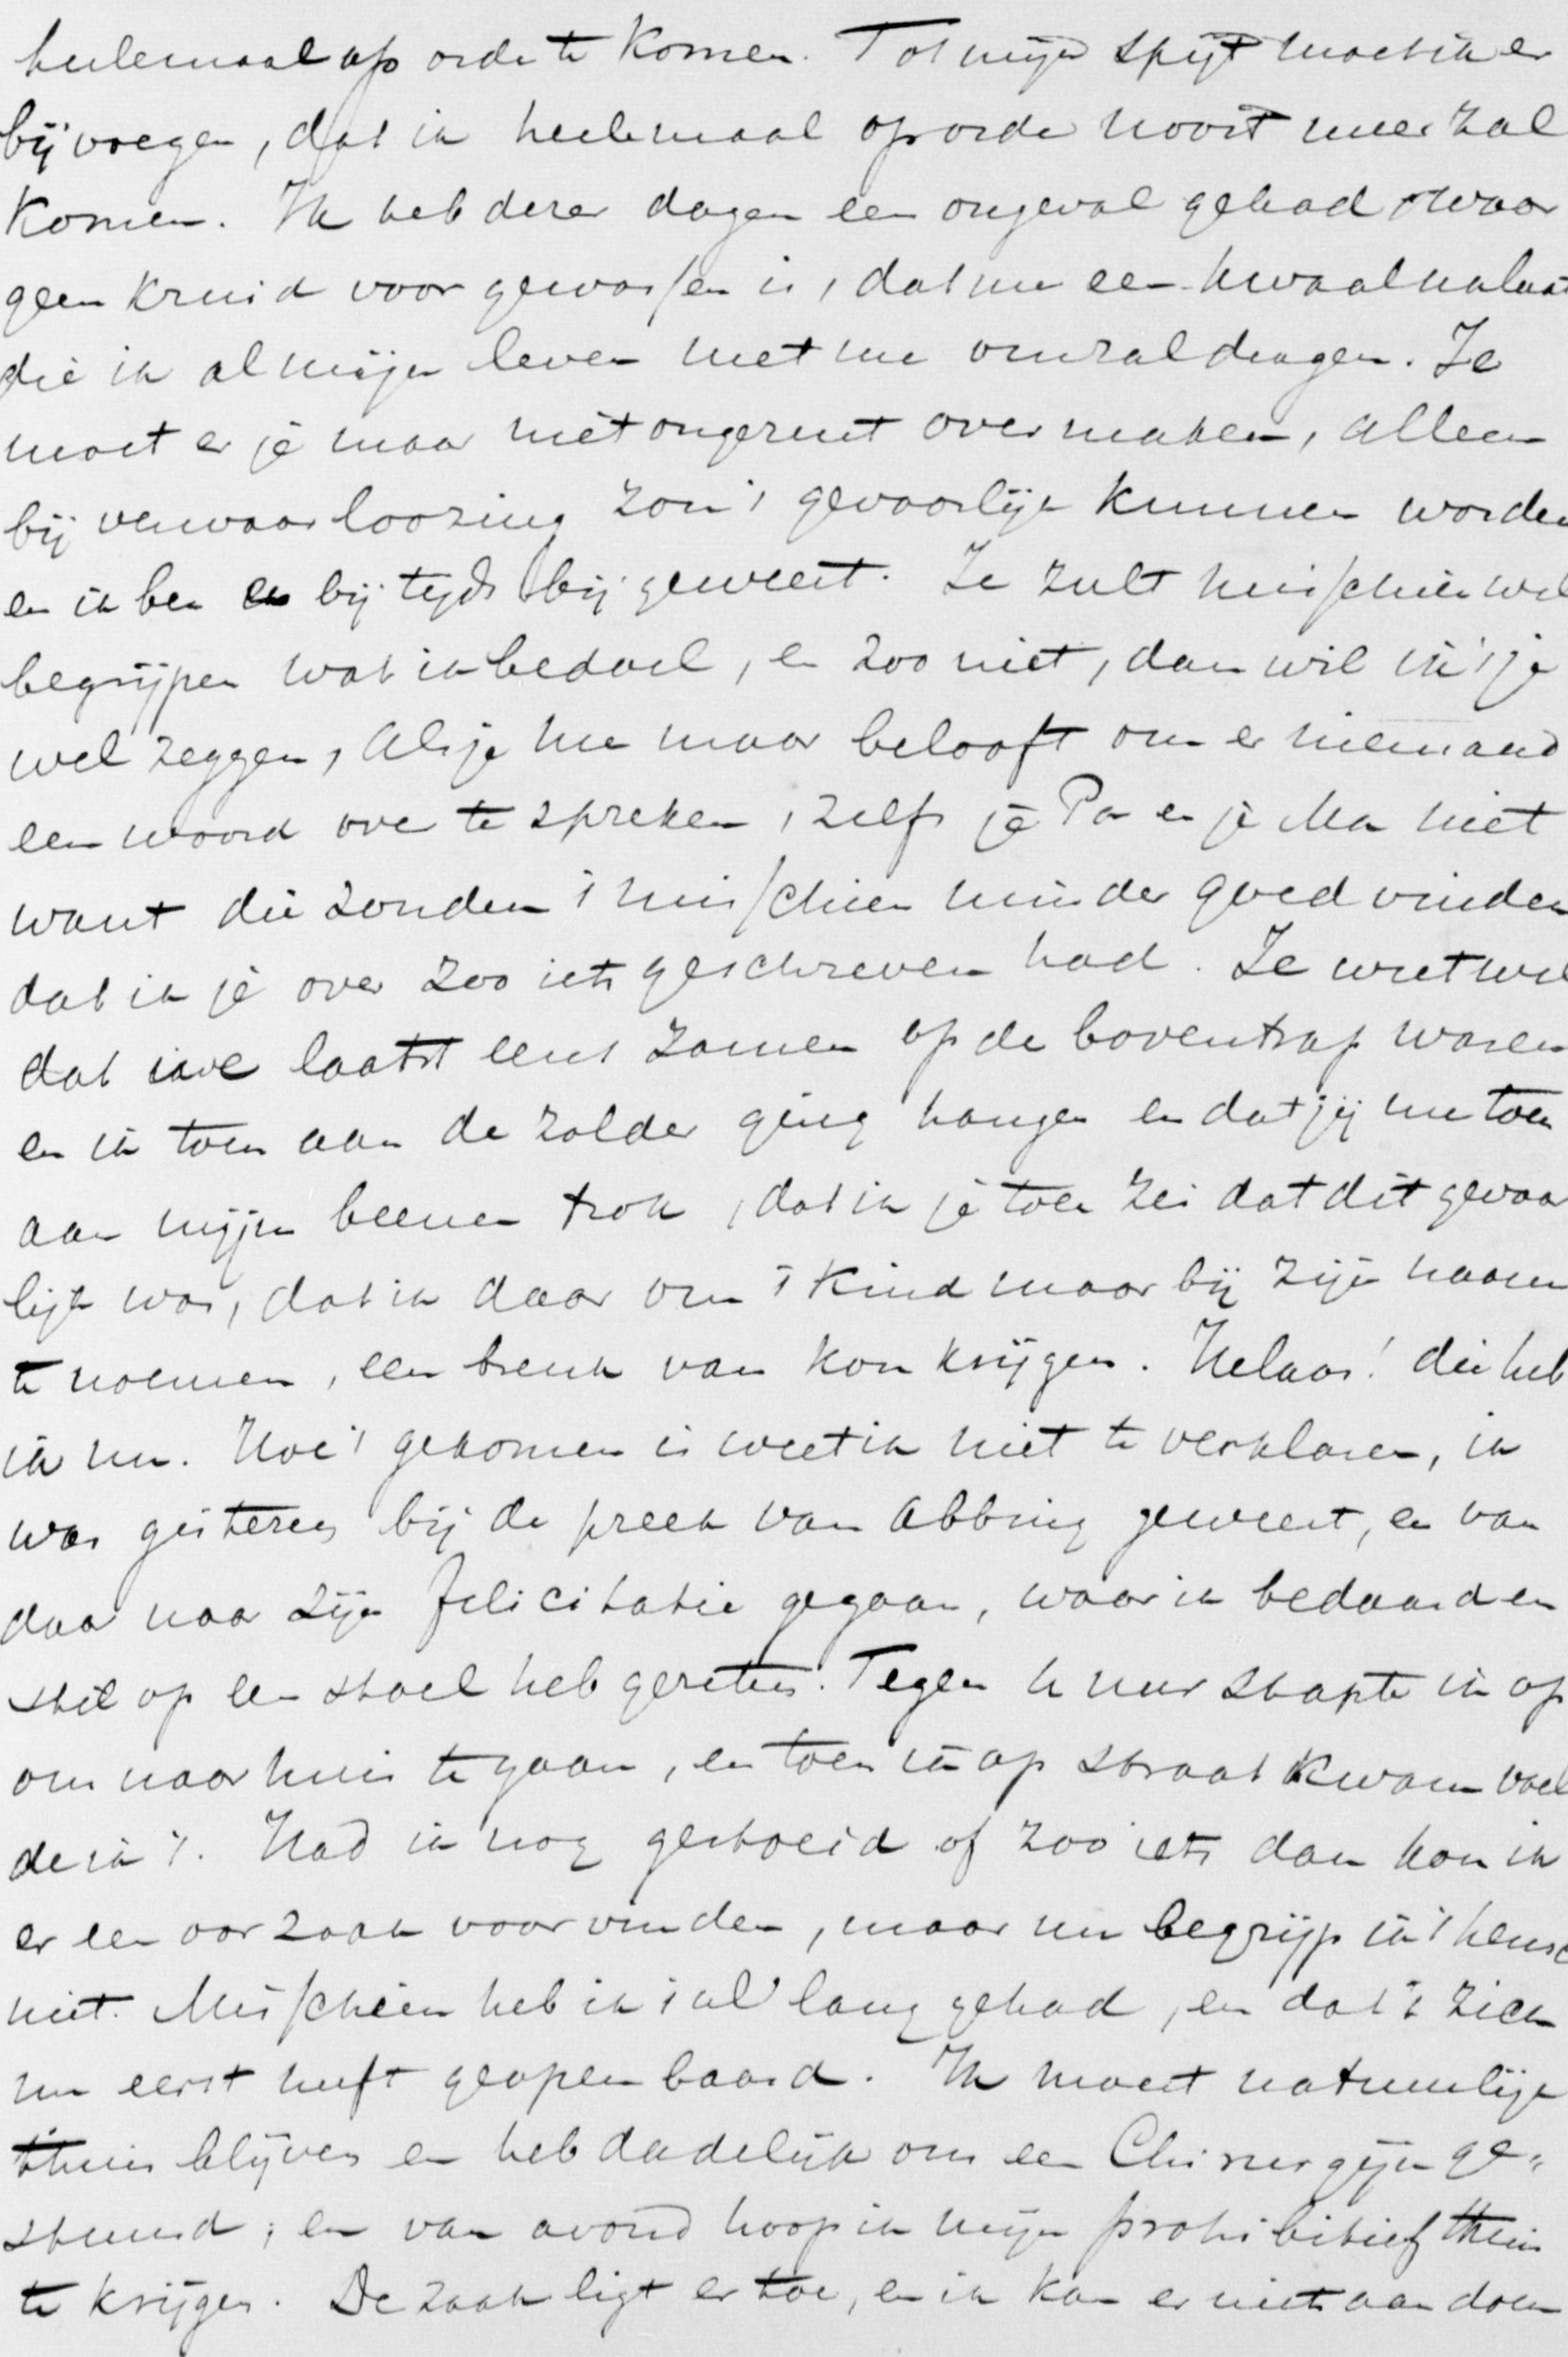 heelemaal op orde te komen. Tot mijn spijt moet ik er
bij voegen, dat ik heelemaal op orde nooit meer zal
komen. Ik heb dezer dagen een ongeval gehad waar
geen kruid voor gewassen is, dat me een kwaal nalaat
die ik al mijn leven met me omzal dragen. Je
moet er je maar niet ongerust over maken, alleen
bij verwaarloozing zou 't gevaarlijk kunnen worden
en ik ben er bij tijds bij geweest. Je zult misschien wel
begrijpen wat ik bedoel, en zoo niet, dan wil ik 't je
wel zeggen, als je me maar belooft om er niemand
een woord over te spreken, zelfs je Pa en je Ma niet
want die zouden 't misschien minder goed vinden
dat ik je over zoo iets geschreven had. Je weet wel
dat we laatst eens zamen op de boventrap waren
en ik toen aan de zolder ging hangen en dat jij me toen
aan mijn beenen trok, dat ik je toen zei dat dit gevaar
lijk was, dat ik daar om 't kind maar bij zijn naam
te noemen, een breuk van kon krijgen. Helaas! die heb
ik nu. Hoe 't gekomen is weet ik niet te verklaren, ik
was gisteren bij de preek van Abbing geweest, en van
daar naar zijn felicitatie gegaan, waar ik bedaard en
stil op een stoel heb gezeten. Tegen 4 uur stapte ik op
om naar huis te gaan, en toen ik op straat kwam voel
de ik 't. Had ik nog gestoeid of zoo iets dan kon ik
er een oorzaak voor vinden, maar nu begrijp ik 't heusch
niet. Misschien heb ik 't al lang gehad, en dat 't zich
nu eerst heeft geopenbaard. Ik moest natuurlijk
thuis blijven en heb dadelijk om een Chirurgijn ge-
stuurd; en van avond hoop ik mijn prohibitief thuis
te krijgen. De zaak ligt er toe, en ik kan er niets aan doen